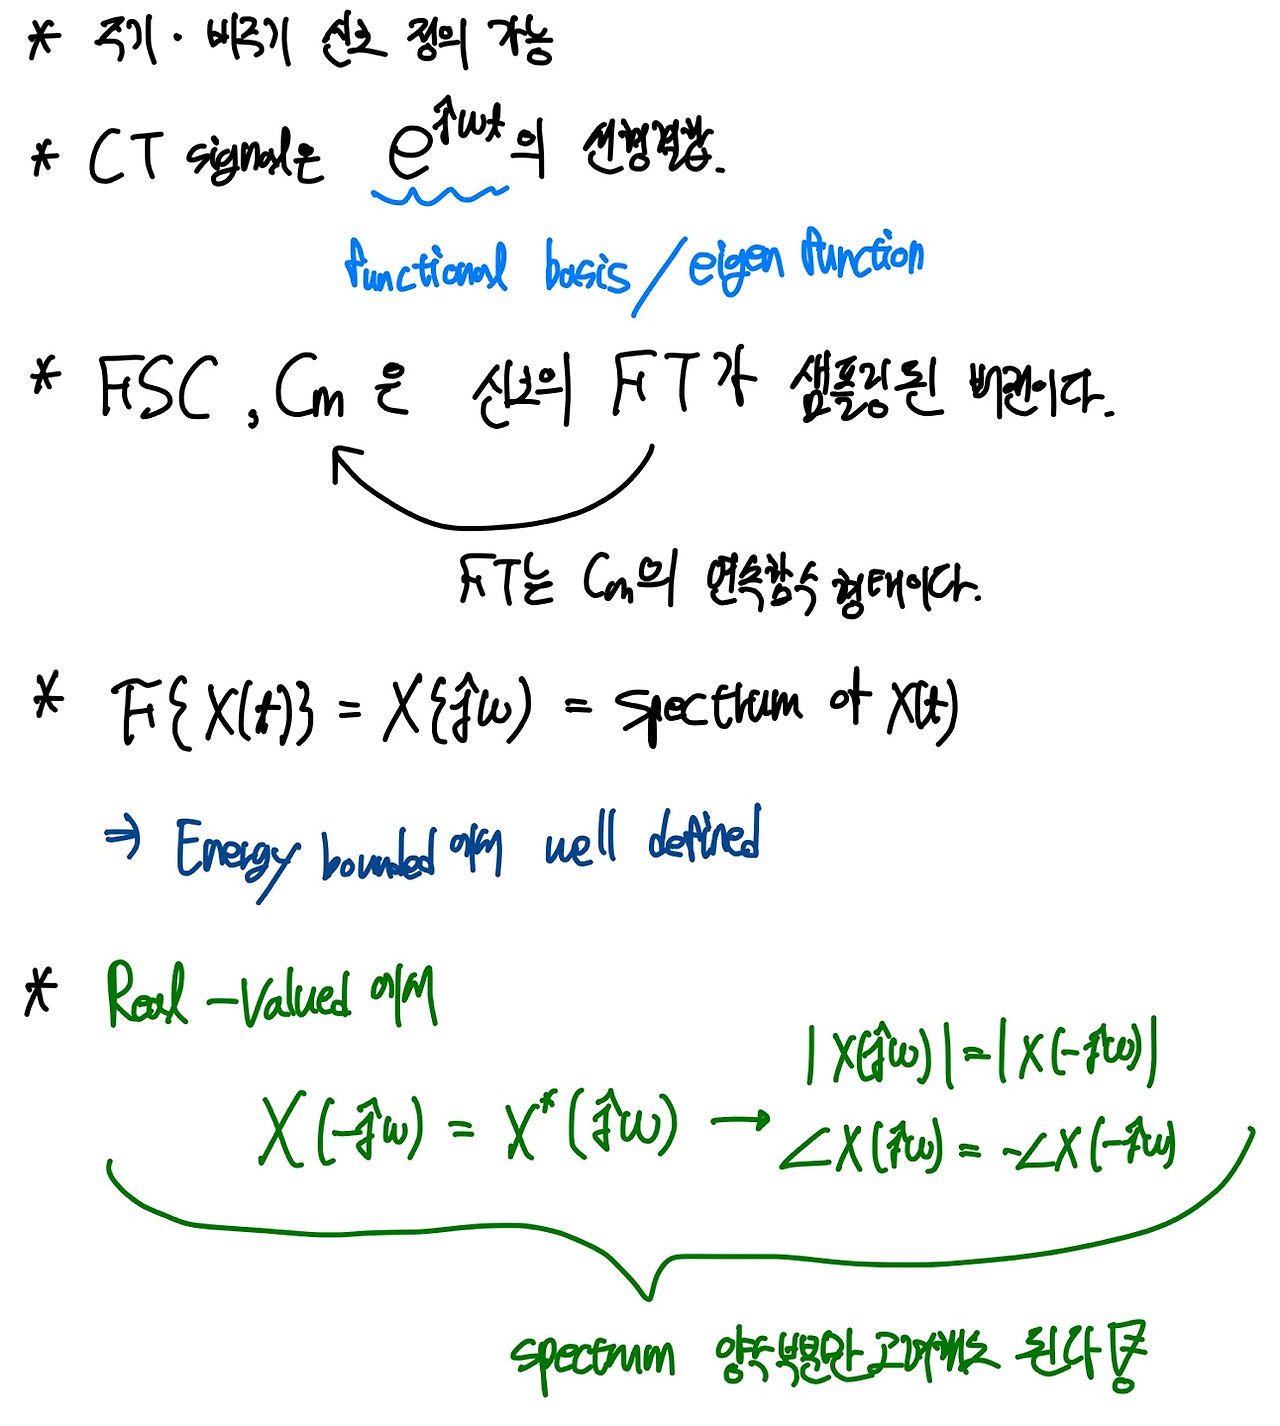 * 주기 · 비주기 신호 정의 가능
* CT signal은 e^{jωt}의 선형결합.
functional basis / eigen function
* FSC, Cm은 신호의 FT가 샘플링된 버전이다.
FT는 Cm의 연속함수 형태이다.
* F{X(t)} = X{jω) = spectrum of X(t)
⇒ Energy bounded에서 well defined
* Real-Valued에서
|X(jω)| = |X(-jω)|
X(-jω) = X*(jω) → ∠X(jω) = -∠X(-jω)
spectrum 양수부분만 고려해도 된다